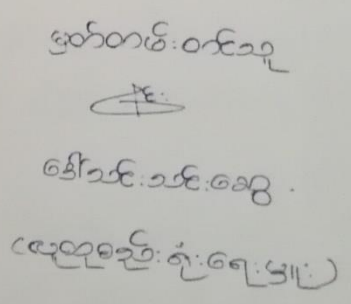 မှတ်တမ်းတင်သူ
ဒေါ်သင်းသင်းဆွေ
(လူထုစည်းရုံးရေးမှူး)